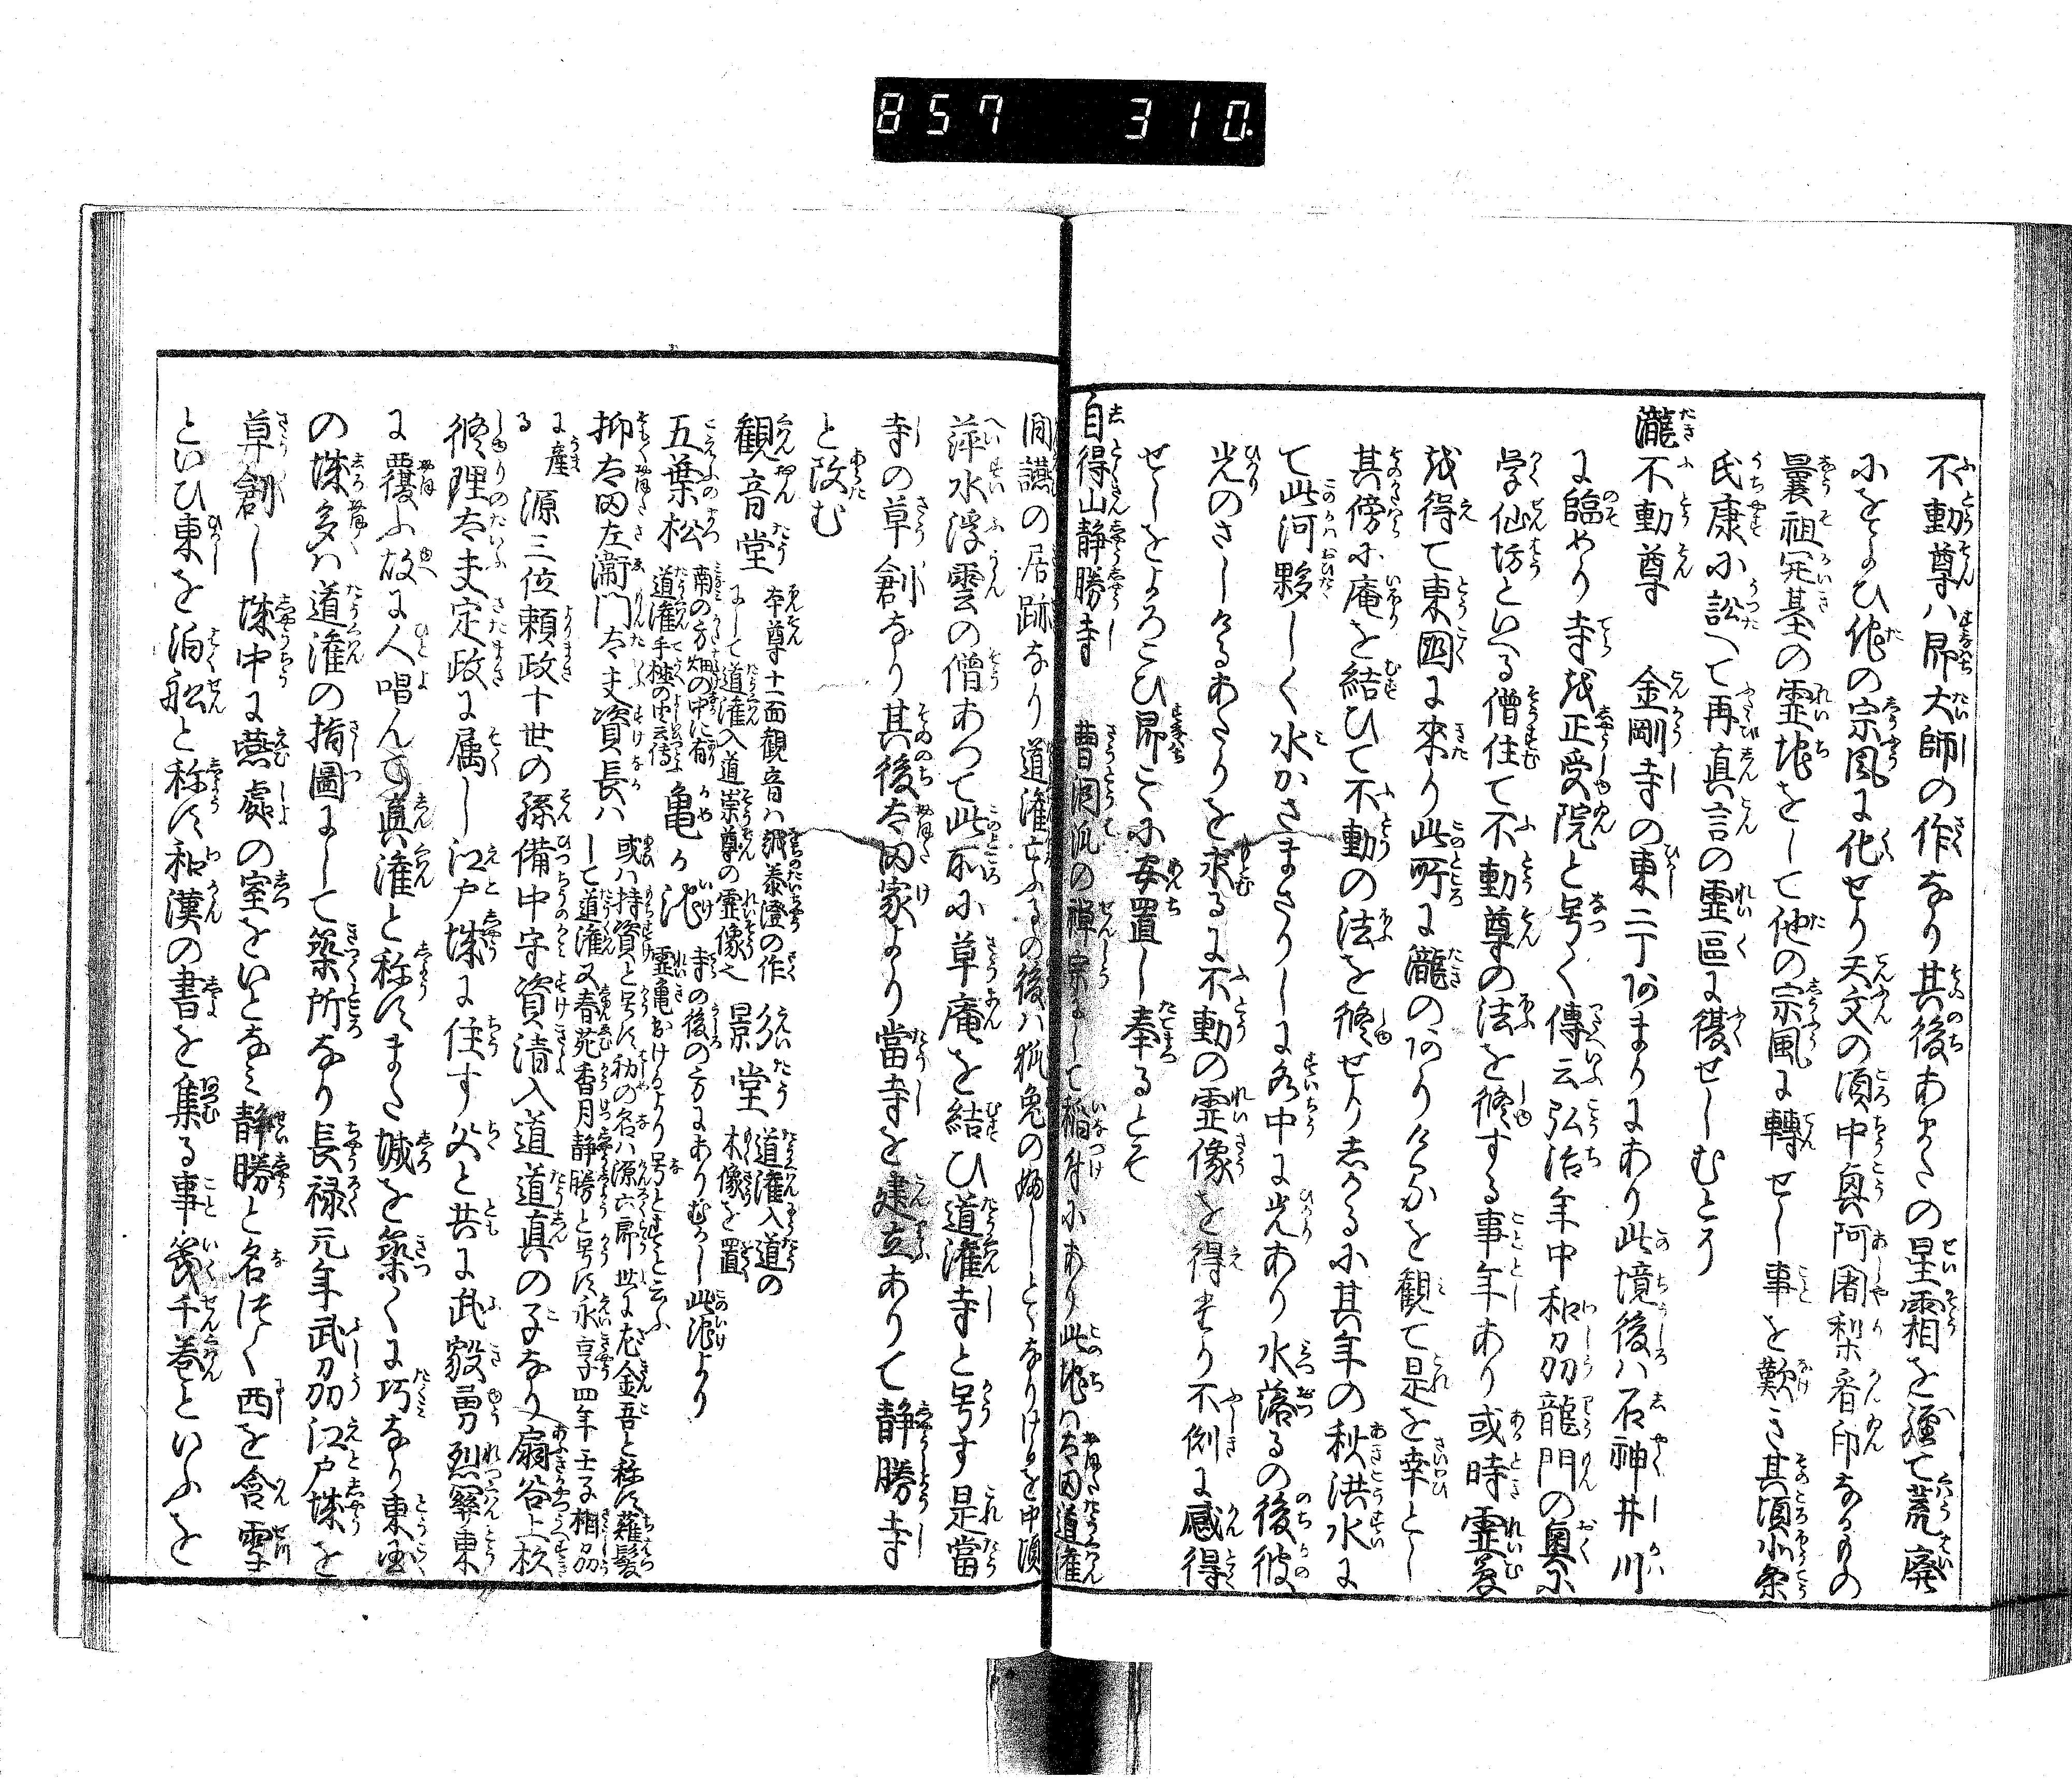 857 310.
不動尊ハ即大師の作なり其後あまたの星霜を經て荒廢
におよひ他の宗風に化せり天文の頃中興阿闍梨宥印なるもの
曩祖開基の霊地をして他の宗風に轉せし事を歎き其頃北条
氏康に訟へて再真言の霊區に復せしむとう
瀧不動尊 金剛寺の東二丁あまりにあり此境後ハ石神井川
に臨めり寺を正受院と号く傳云弘治年中和刕龍門の奥に
学仙坊といへる僧住て不動尊の法を修する事年あり或時霊夢
を得て東國に來り此所に瀧のありけるを観て是を幸とし
其傍に庵を結ひて不動の法を修せり志かるに其年の秋洪水に
て此河夥しく水かさまさりしに水中に光あり水落るの後彼
光のさしけるあたりを求るに不動の霊像を得たり不測に感得
せしをよろこひ即こゝに安置し奉るとそ
自得山静勝寺 曹洞派の禅宗にして稲付にあり此地ハ太田道灌
間讌の居跡なり道灌亡ふるの後ハ狐兎の婦しとゝなりけるを中頃
萍水浮雲の僧あつて此所に草庵を結ひ道灌寺と号す是當
寺の草創なり其後太田家より當寺を建立ありて静勝寺
と改む
観音堂 本尊十一面観音ハ泰澄の作
にして道灌入道崇尊の霊像也 影堂 道灌入道の
木像を置
五葉松 南の方畑の中に有
道灌手植の由云傳 亀ヶ池 寺の後の方にありむかし此池より
霊亀出けるより号とすと云ふ
抑太田左衛門太夫資長ハ 或ハ持資と号す初の名ハ源六郎世に左金吾と称す薙髪
して道灌又春苑香月静勝と号す永享四年壬子相刕
に産
る 源三位頼政十世の孫備中守資清入道道真の子なり扇谷上杦
修理太夫定政に属し江戸城に住す父と共に武毅勇烈関東
に覆ふ故に人唱へて真灌と称すまた城を築くに巧なり東国
の城多ハ道灌の指圖にして築所なり長禄元年武刕江戸城を
草創し城中に燕處の室をいとなミ静勝と名づく西を含雪
といひ東を泊舩と称す和漢の書を集る事幾千巻といふを